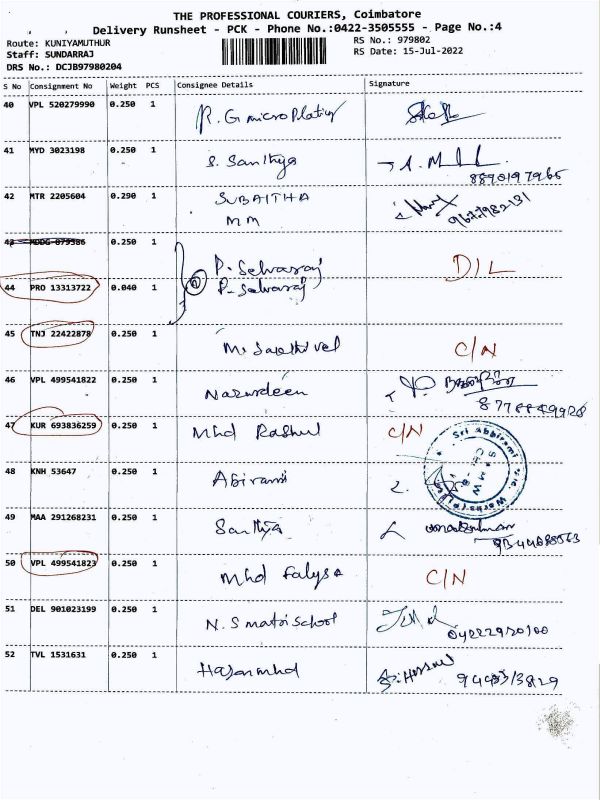 THE PROFESSIONAL COURIERS, Coimbatore
Delivery Runsheet - PCK - Phone No.:0422-3505555 - Page No.:4
Route: KUNIYAMUTHUR RS No.: 979802
Staff: SUNDARRAJ RS Date: 15-Jul-2022
DRS No.: DCJB97980204
S No Consignment No Weight PCS Consignee Details Signature
40 VPL 520279990 0.250 1 R. G micro Plating
41 MYD 3023198 0.250 1 S. Santhya
8890197965
42 MTR 2205604 0.290 1 SUBAITHA
MM
43 0.250 1 P. Selvaraj D/L
44 PRO 13313722 0.040 1 P. Selvaraj
45 TNJ 22422878 0.250 1 C/N
46 VPL 499541822 0.250 1 Nazurdeen
47 KUR 693836259 0.250 1 Mhd Rashul C/N
48 KNH 53647 0.250 1 Abirami
49 MAA 291268231 0.250 1 Santhya
50 VPL 499541823 0.250 1 Mhd C/N
51 DEL 901023199 0.250 1 N. S matri school
04222920100
52 TVL 1531631 0.250 1 Hasanmhd